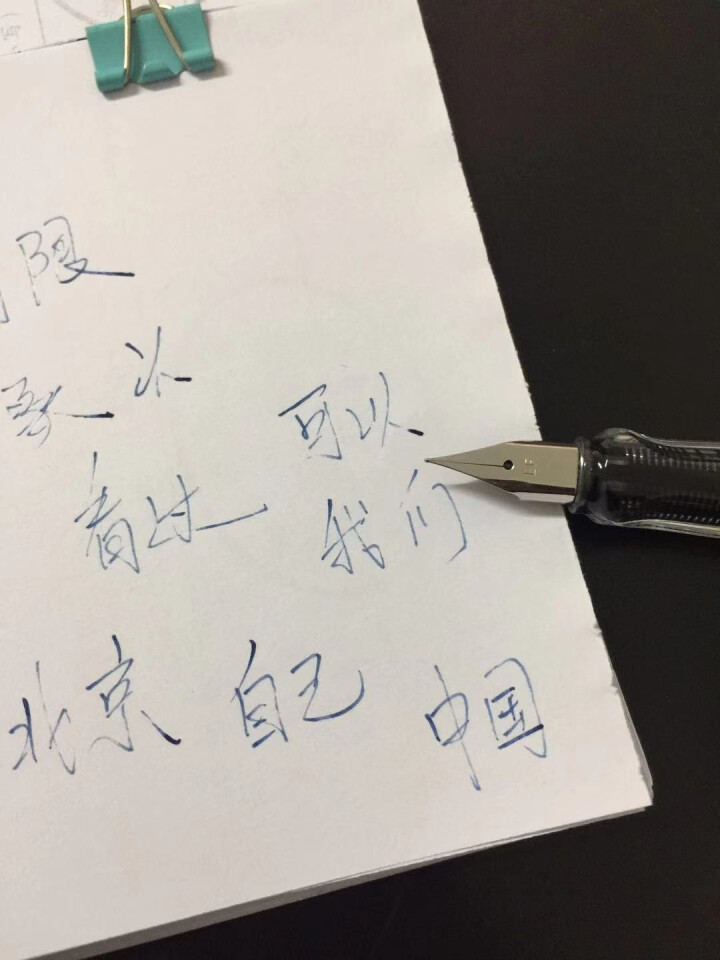 限
看过
可以
我们
北京 自己 中国